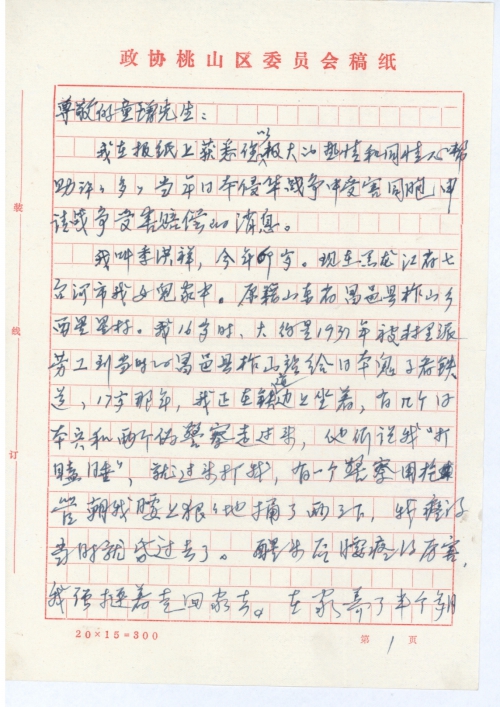 政协桃山区委员会稿纸
尊敬的童增先生：
我在报纸上获悉您以极大的热情和同情心帮
助许多多当年日本侵华战争中受害同胞，申
请战争受害赔偿的消息。
我叫李洪祥，今年69岁。现在黑龙江省七
台河市我女儿家中。原籍山东省昌邑县柞山乡
西里村。我16岁时，大约是1937年被村里派
劳工到当时的昌邑县柞山站给日本鬼子看铁
道，17岁那年，我正在铁道边上坐着，有几个日
本兵和两个伪警察走过来，他们说我“打
瞌睡”，就过来打我，有一个警察用枪
管朝我腰上狠狠地捅了两三下，我疼得
当时就昏过去了。醒来后腰疼得厉害，
我强挺着走回家去。在家养了半个多月
装
线
订
20×15=300
第1页